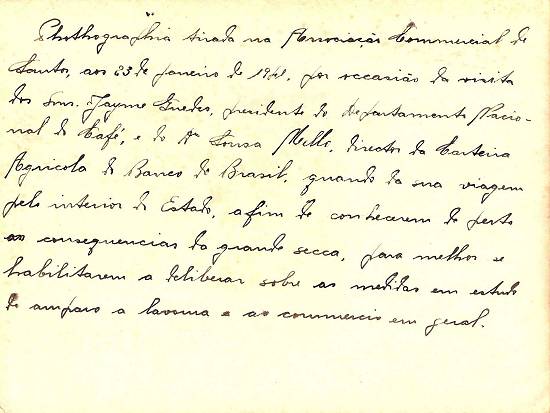 Photographia tirada na Associação Commercial de
Santos, aos 23 de janeiro de 1941, por occasião da visita
dos Snrs. Jayme Guedes, presidente do Departamento Nacio-
nal do Café, e do Dr Souza Mello, director da Carteira
Agricola do Banco do Brasil, quando da sua viagem
pelo interior do Estado, a fim de conhecerem de perto
as consequencias da grande secca, para melhor se
habilitarem a deliberar sobre as medidas em estudo
de amparo a lavoura e ao commercio em geral.